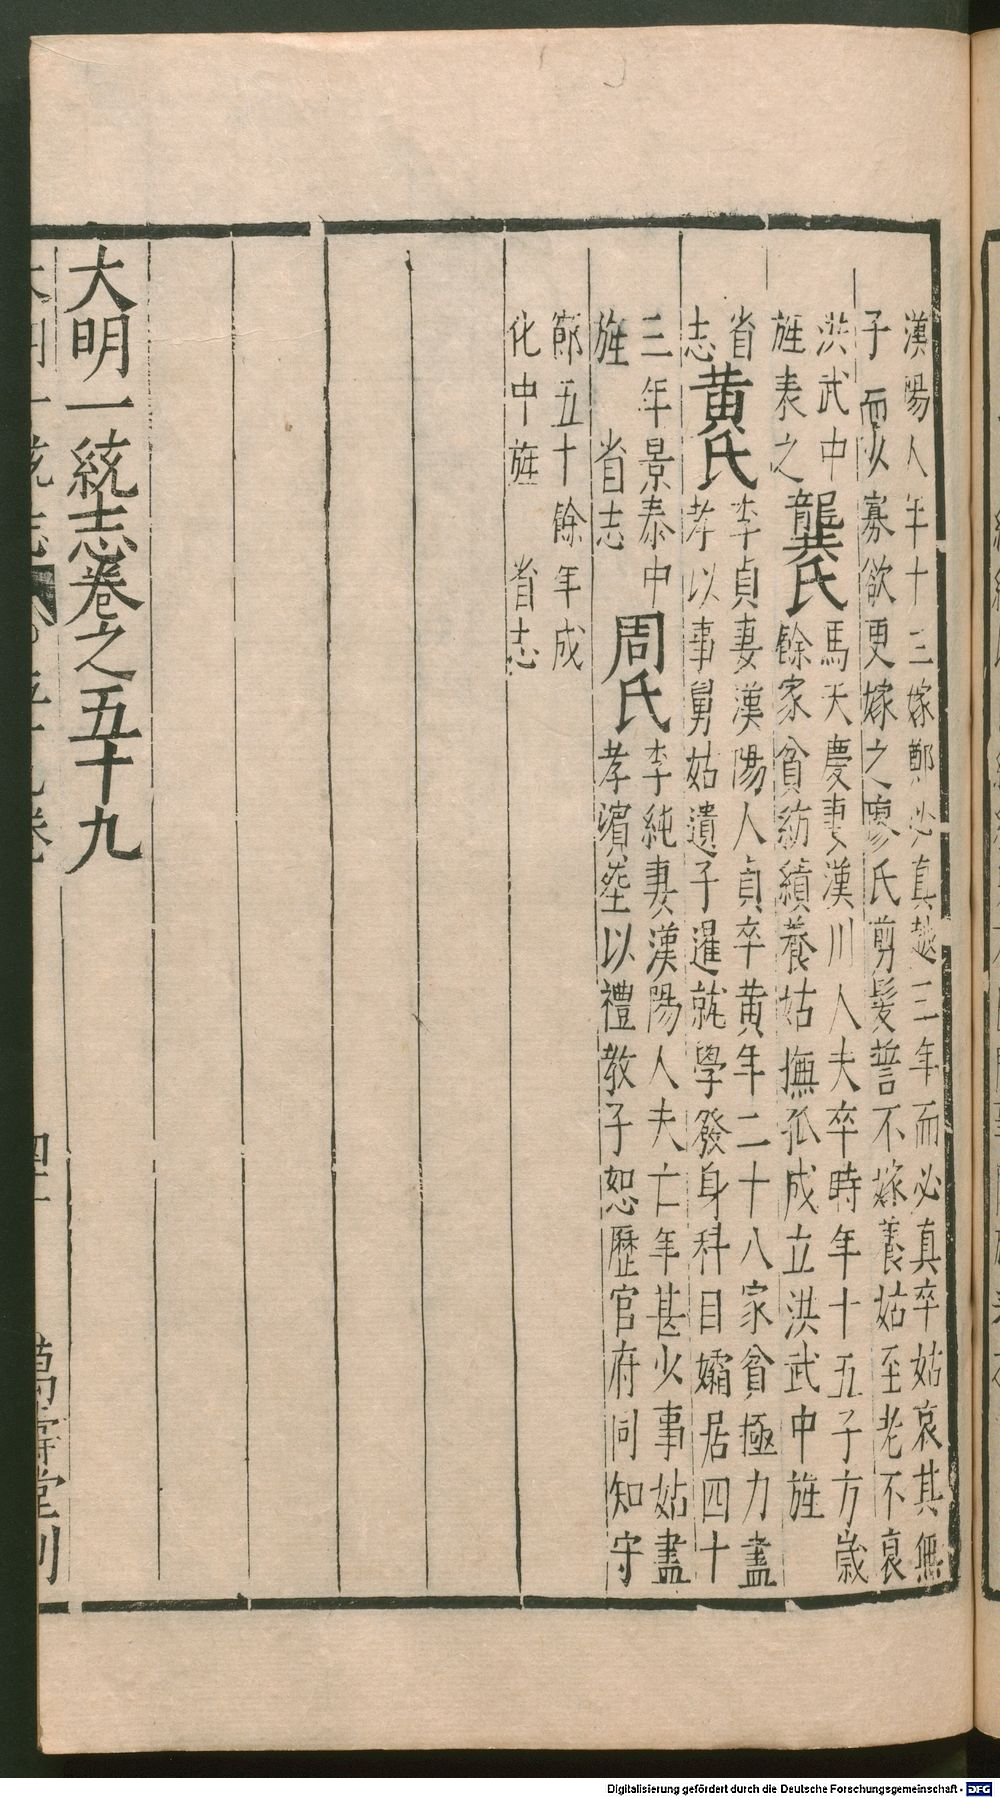 漢陽人年十三嫁鄭必真越三年而必真卒姑哀其無
子而少寡欲更嫁之廖氏剪髮誓不嫁養姑至老不衰
洪武中
旌表之
龔氏
馬天慶妻漢川人夫卒時年十五子方歲
餘家貧紡績養姑撫孤成立洪武中旌
省
志
黄氏
李貞妻漢陽人貞卒黄年二十八家貧極力盡
孝以事舅姑遺子暹就學發身科目孀居四十
三年景泰中
旌 省志
周氏
李純妻漢陽人夫亡年甚少事姑盡
孝殯塟以禮教子恕歷官府同知守
節五十餘年成
化中旌 省志
大明一統志卷之五十九
大明一統志 五十九卷 萬壽堂刊
Digitalisierung gefördert durch die Deutsche Forschungsgemeinschaft - DFG